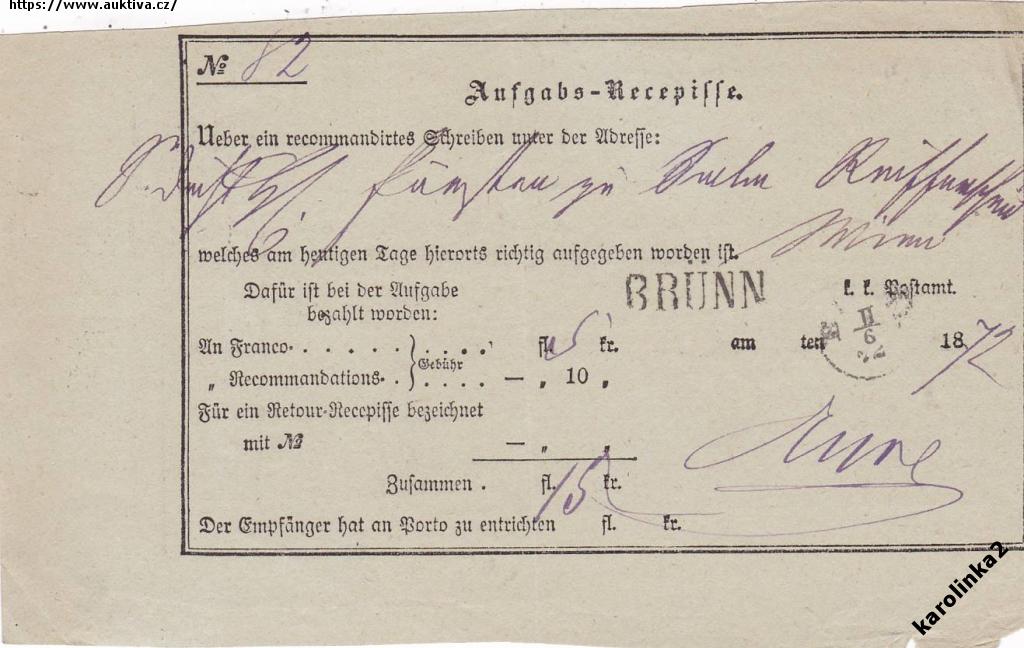 https://www.auktiva.cz/
№ 82
Aufgabs-Recepisse.
Ueber ein recommandirtes Schreiben unter der Adresse:
Fürsten zu Salm Reifferscheid
Wien
welches am heutigen Tage hierorts richtig aufgegeben worden ist.
Dafür ist bei der Aufgabe
bezahlt worden:
BRÜNN
k. k. Postamt.
An Franco- . . . . . } . . . . fl. 5 kr.
am ten 1872
II
6
72
Gebühr
„ Recommandations- . . } . . . . — „ 10 „
Für ein Retour-Recepisse bezeichnet
mit № — „ „
Zusammen . fl. 15 kr.
Der Empfänger hat an Porto zu entrichten fl. kr.
karolinka2